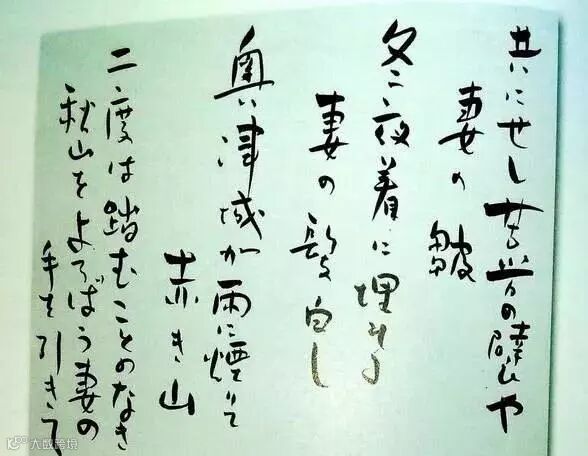 共にせし苦労の襞や
妻の皺
冬夜着に埋れ
妻の髪白し
奥津城が雨に煙りて
赤き山
二度は踏むことのなき
秋山をよろばう妻の
手を引きて
大数跨境